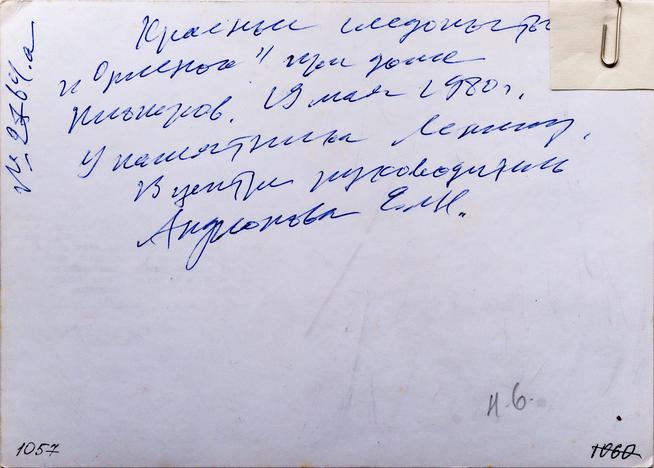 Красные следопыты
и "Орленок" при доме
пионеров. 19 мая 1980г.
У памятника Ленину.
В центре руководитель
Андронова Е.М.
№ 2764.а
н.б.
1057
1060